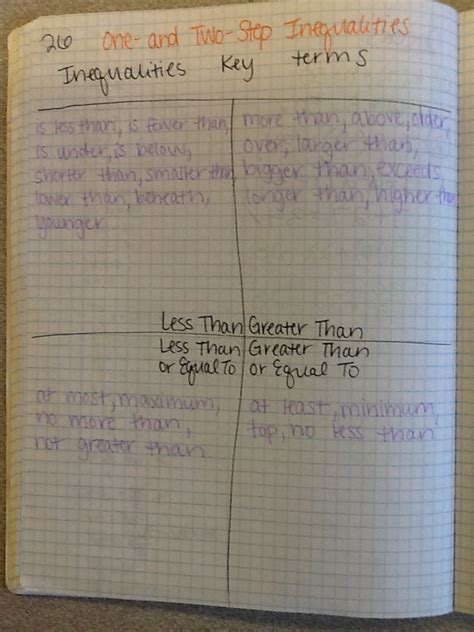 26 One- and Two-Step Inequalities
Inequalities Key terms
is less than, is fewer than,
is under, is below,
shorter than, smaller than
lower than, beneath,
younger
more than, above, older,
over, larger than,
bigger than, exceeds,
longer than, higher than
Less Than
Greater Than
Less Than
or Equal To
Greater Than
or Equal To
at most, maximum,
no more than,
not greater than
at least, minimum,
top, no less than